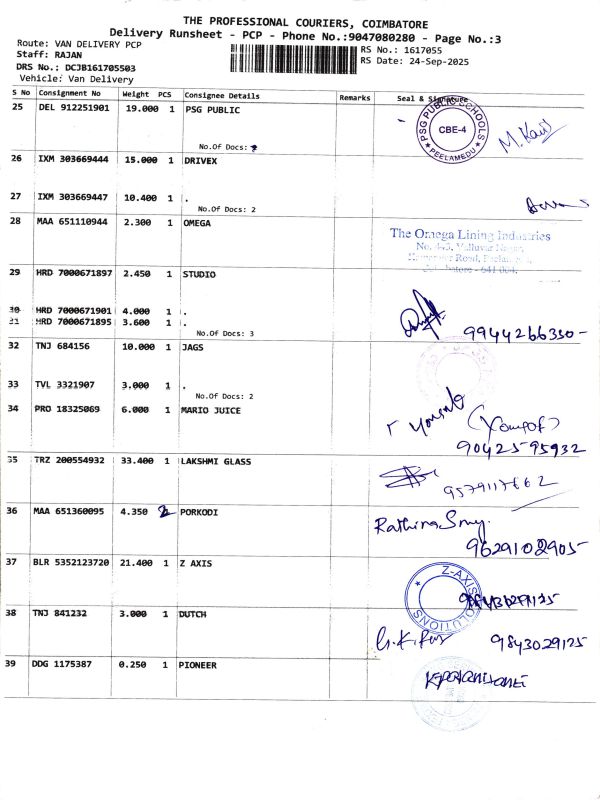 THE PROFESSIONAL COURIERS, COIMBATORE
Delivery Runsheet - PCP - Phone No.:9047080280 - Page No.:3
Route: VAN DELIVERY PCP
Staff: RAJAN
DRS No.: DCJB161705503
Vehicle: Van Delivery
RS No.: 1617055
RS Date: 24-Sep-2025
S No Consignment No Weight PCS Consignee Details Remarks Seal & Signature
25 DEL 912251901 19.000 1 PSG PUBLIC
No.Of Docs:
PSG PUBLIC SCHOOLS
CBE-4
PEELAMEDU
26 IXM 303669444 15.000 1 DRIVEX
27 IXM 303669447 10.400 1 .
No.Of Docs: 2
28 MAA 651110944 2.300 1 OMEGA
The Omega Lining Industries
29 HRD 7000671897 2.450 1 STUDIO
30 HRD 7000671901 4.000 1 .
31 HRD 7000671895 3.600 1 .
No.Of Docs: 3
9944266330-
32 TNJ 684156 10.000 1 JAGS
33 TVL 3321907 3.000 1 .
No.Of Docs: 2
34 PRO 18325069 6.000 1 MARIO JUICE
90425-95932
35 TRZ 200554932 33.400 1 LAKSHMI GLASS
9579117662
36 MAA 651360095 4.350 2 PORKODI
9629102905
37 BLR 5352123720 21.400 1 Z AXIS
Z-AXIS SOLUTIONS
38 TNJ 841232 3.000 1 DUTCH
9843029125
39 DDG 1175387 0.250 1 PIONEER